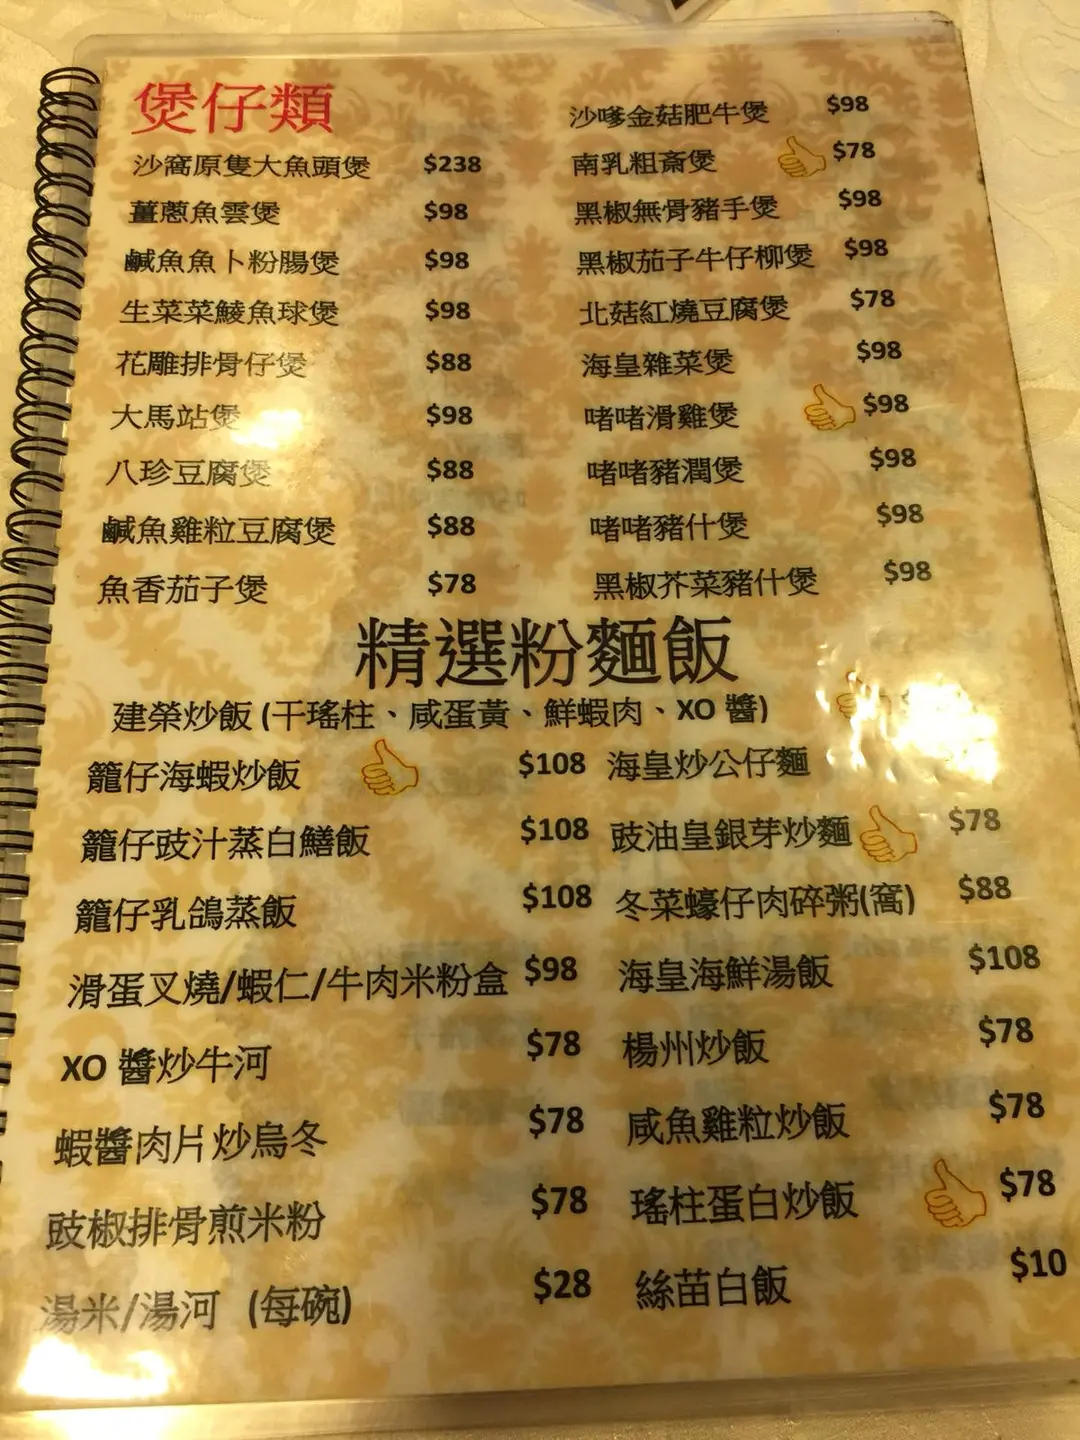 煲仔類
沙窩原隻大魚頭煲 $238
薑蔥魚雲煲 $98
鹹魚魚卜粉腸煲 $98
生菜菜鯪魚球煲 $98
花雕排骨仔煲 $88
大馬站煲 $98
八珍豆腐煲 $88
鹹魚雞粒豆腐煲 $88
魚香茄子煲 $78
沙嗲金菇肥牛煲 $98
南乳粗齋煲 $78
黑椒無骨豬手煲 $98
黑椒茄子牛仔柳煲 $98
北菇紅燒豆腐煲 $78
海皇雜菜煲 $98
啫啫滑雞煲 $98
啫啫豬潤煲 $98
啫啫豬什煲 $98
黑椒芥菜豬什煲 $98
精選粉麵飯
建榮炒飯 (干瑤柱、咸蛋黃、鮮蝦肉、XO 醬)
籠仔海蝦炒飯 $108
籠仔豉汁蒸白鱔飯 $108
籠仔乳鴿蒸飯 $108
滑蛋叉燒/蝦仁/牛肉米粉盒 $98
XO 醬炒牛河 $78
蝦醬肉片炒烏冬 $78
豉椒排骨煎米粉 $78
湯米/湯河 (每碗) $28
海皇炒公仔麵
豉油皇銀芽炒麵 $78
冬菜蠔仔肉碎粥(窩) $88
海皇海鮮湯飯 $108
楊州炒飯 $78
咸魚雞粒炒飯 $78
瑤柱蛋白炒飯 $78
絲苗白飯 $10